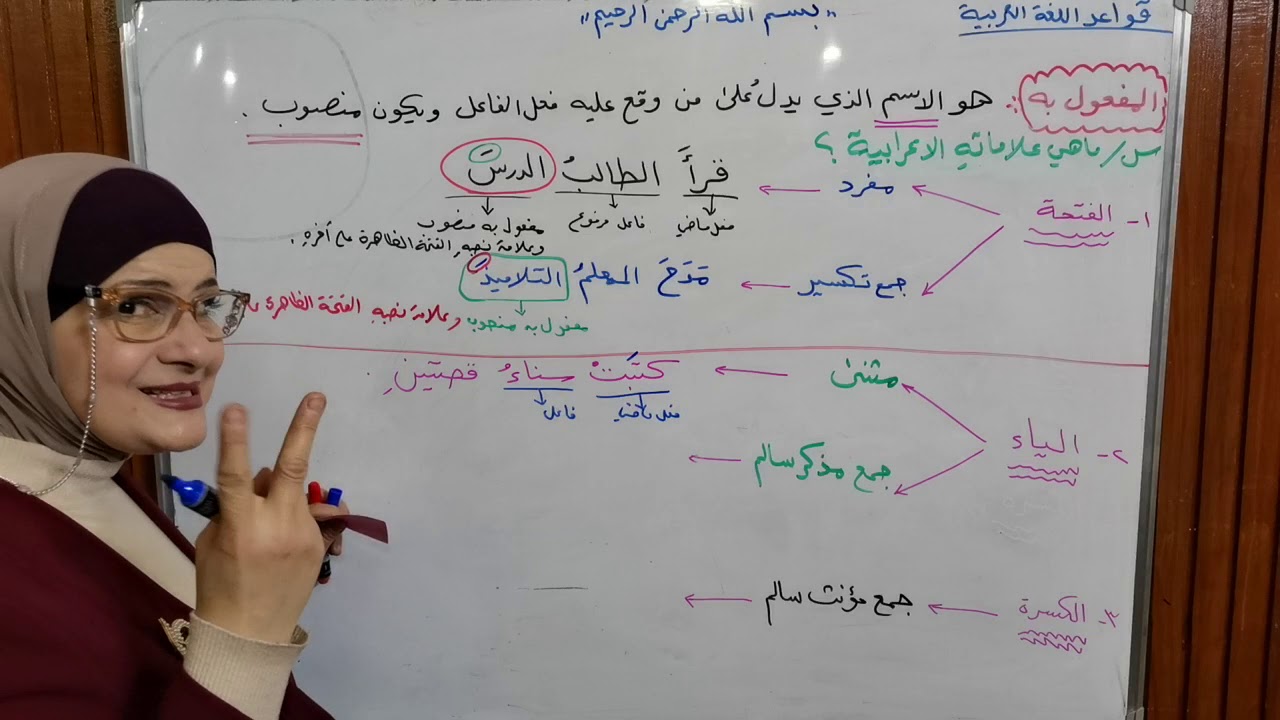 قواعد اللغة العربية
"بسم الله الرحمن الرحيم"
المفعول به : هو الاسم الذي يدل على من وقع عليه فعل الفاعل ويكون منصوب .
س/ ماهي علاماته الاعرابية ؟
١- الفتحة
مفرد
قرأَ الطالبُ الدرسَ
فعل ماضي
فاعل مرفوع
مفعول به منصوب
وعلامة نصبهِ الفتحة الظاهرة على أخرهِ .
جمع تكسير
مَدَحَ المعلمُ التلاميذَ
مفعول به منصوب وعلامة نصبهِ الفتحة الظاهرة
٢- الياء
مثنى
كتبَتْ سناءُ قصتينِ .
فعل ماضي
فاعل
جمع مذكر سالم
٣- الكسرة
جمع مؤنث سالم